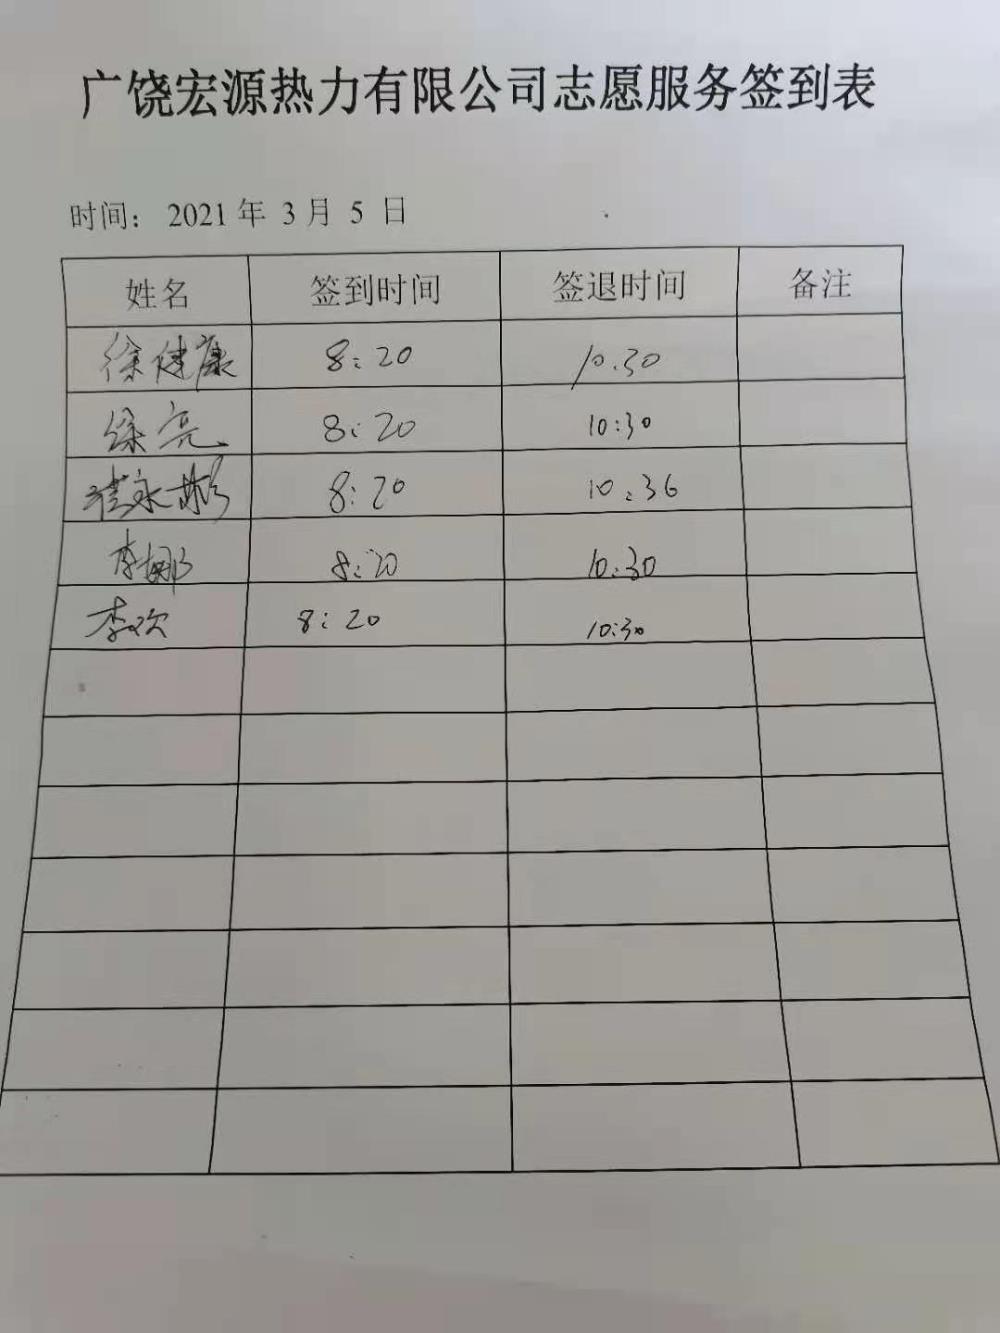 广饶宏源热力有限公司志愿服务签到表
时间： 2021 年 3 月 5 日
姓名 签到时间 签退时间 备注
徐健康 8:20 10.30
徐亮 8:20 10:30
永彬 8:20 10:36
李娜 8:20 10:30
李欢 8:20 10:30